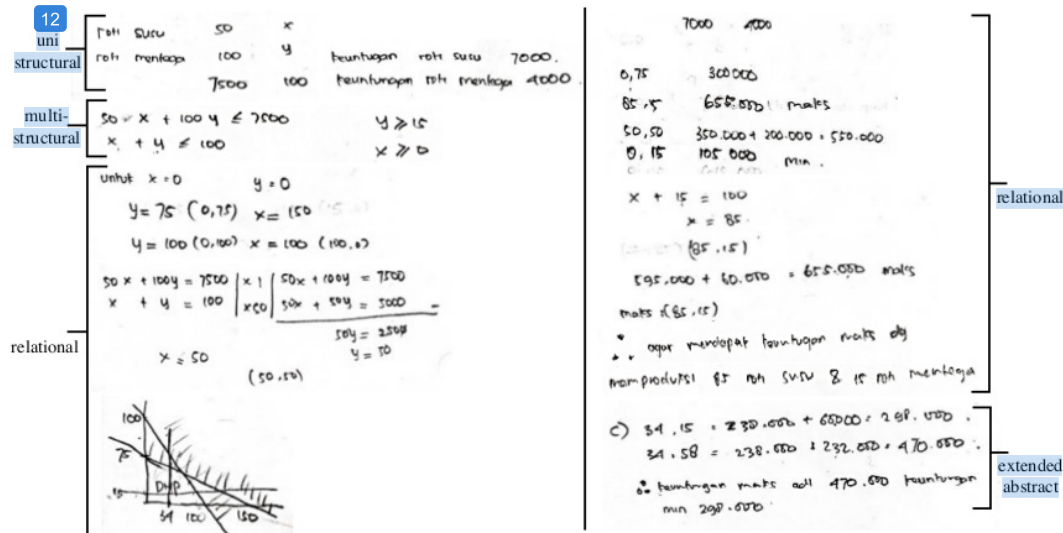 12
uni
structural
roti susu 50 x
roti mentega 100 y keuntungan roti susu 7000.
7500 100 keuntungan roti mentega 4000.
multi-
structural
50 x + 100 y ≤ 7500 y ≥ 15
x + y ≤ 100 x ≥ 0
untuk x = 0 y = 0
y = 75 (0,75) x = 150
y = 100 (0,100) x = 100 (100,0)
50x + 100y = 7500 | x 1 | 50x + 100y = 7500
x + y = 100 | x 50 | 50x + 50y = 5000 -
50y = 2500
y = 50
x = 50
(50,50)
relational
100
75
15
DHP
34 100 150
7000 4000
0,75 300000
85,15 655.000 maks
50,50 350.000 + 200.000 = 550.000
0,15 105 000 min.
x + 15 = 100
x = 85.
(85,15)
595.000 + 60.000 = 655.000 maks
maks : (85,15)
∴ agar mendapat keuntungan maks dg
memproduksi 85 roti susu & 15 roti mentega
relational
c) 34,15 = 238.000 + 60000 = 298.000.
34,58 = 238.000 + 232.000 = 470.000.
∴ keuntungan maks adl 470.000 keuntungan
min 298.000
extended
abstract